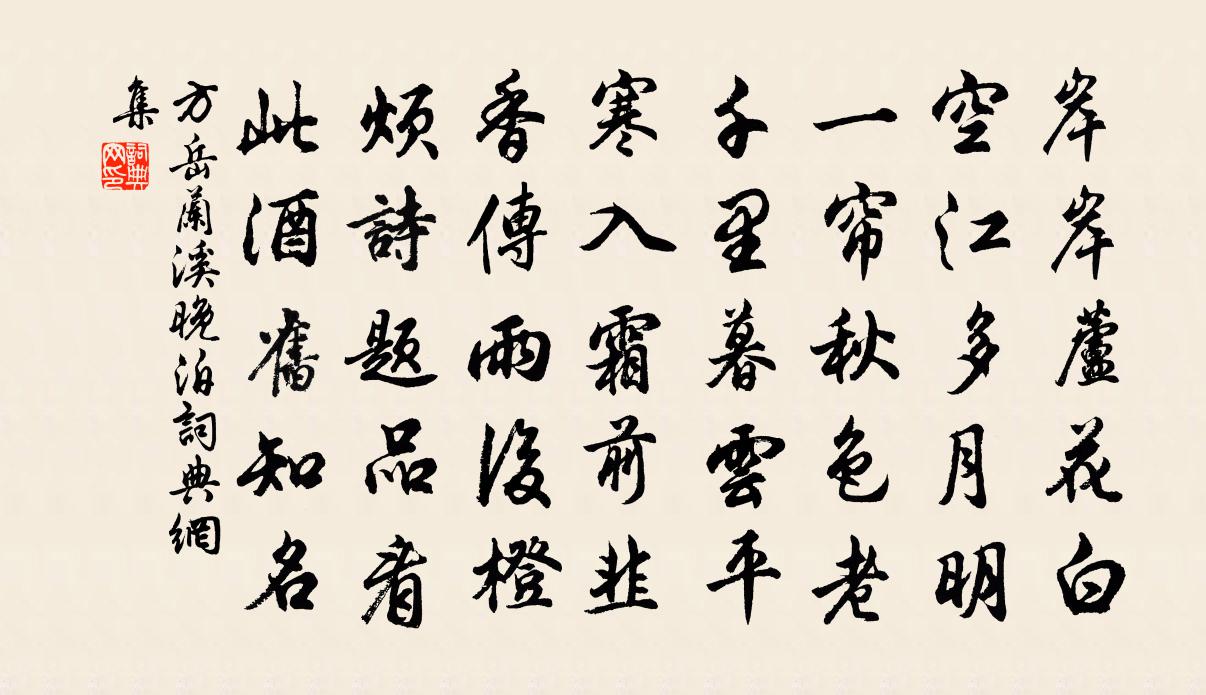 岸岸蘆花白
空江多月明
一帘秋色老
千里暮雲平
寒入霜前韭
香傳雨後橙
煩詩題品看
此酒舊知名
方岳蘭溪晚泊詞典網
集
詞典
网印